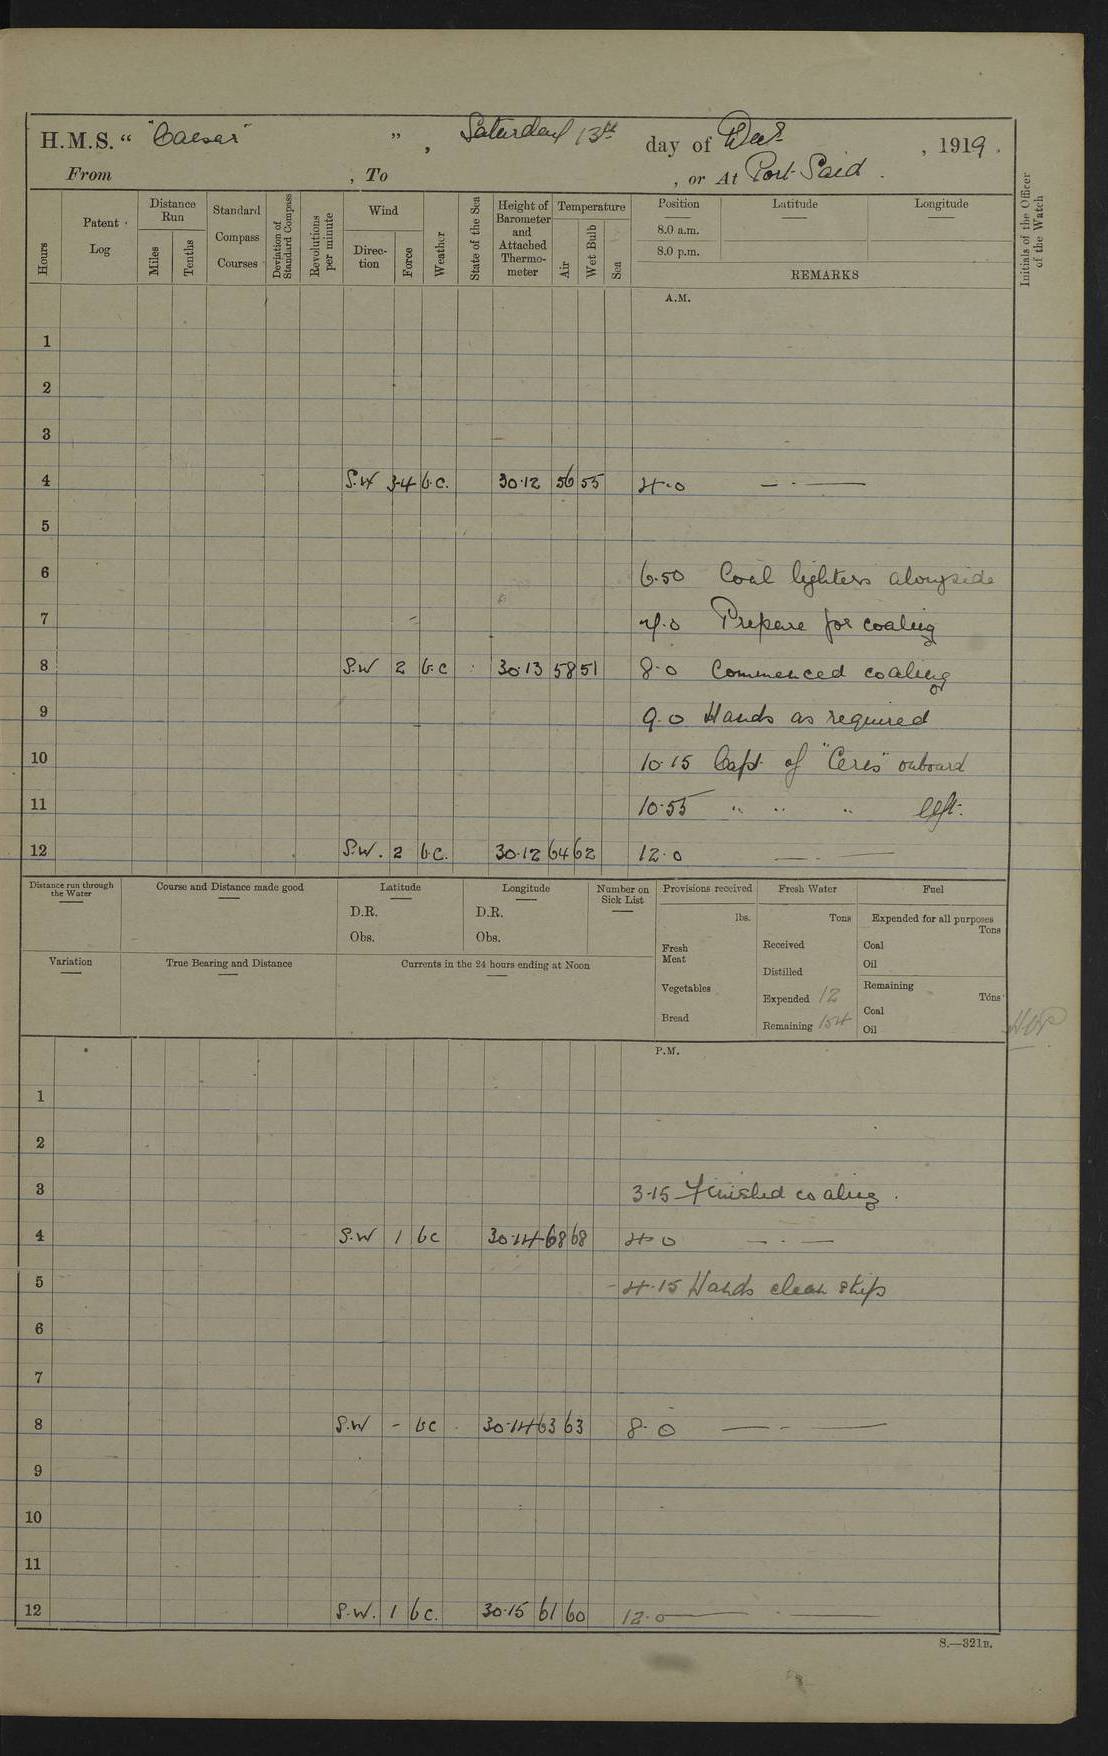 H.M.S. “ "Caesar" ” , Saturday 13th day of Decr , 1919 .
From , To , or At Port Said .
Hours
Patent Log
Distance Run
Miles
Tenths
Standard Compass Courses
Deviation of Standard Compass
Revolutions per minute
Wind
Direction
Force
Weather
State of the Sea
Height of Barometer and Attached Thermometer
Temperature
Air
Wet Bulb
Sea
Position Latitude Longitude
8.0 a.m.
8.0 p.m.
REMARKS
Initials of the Officer of the Watch
A.M.
1
2
3
4 S.W 3-4 b.c. 30·12 56 55 4·0 — · —
5
6 6·50 Coal lighters alongside
7 7·0 Prepare for coaling
8 S.W 2 b.c 30·13 58 51 8·0 Commenced coaling
9 9·0 Hands as required
10 10·15 Capt. of "Ceres" onboard
11 10·55 " " " left.
12 S.W. 2 b.c. 30·12 64 62 12·0 — · —
Distance run through the Water
Course and Distance made good
Latitude
D.R.
Obs.
Longitude
D.R.
Obs.
Number on Sick List
Variation
True Bearing and Distance
Currents in the 24 hours ending at Noon
Provisions received
lbs.
Fresh Meat
Vegetables
Bread
Fresh Water
Tons
Received
Distilled
Expended 12
Remaining 154
Fuel
Expended for all purposes
Tons
Coal
Oil
Remaining
Tons
Coal
Oil
P.M.
1
2
3 3·15 Finished coaling .
4 S.W 1 bc 30·14 68 68 4·0 — · —
5 4·15 Hands clean ship
6
7
8 S.W - bc 30·14 63 63 8·0 — · —
9
10
11
12 S.W. 1 bc. 30·15 61 60 12·0 — · —
S.—321B.